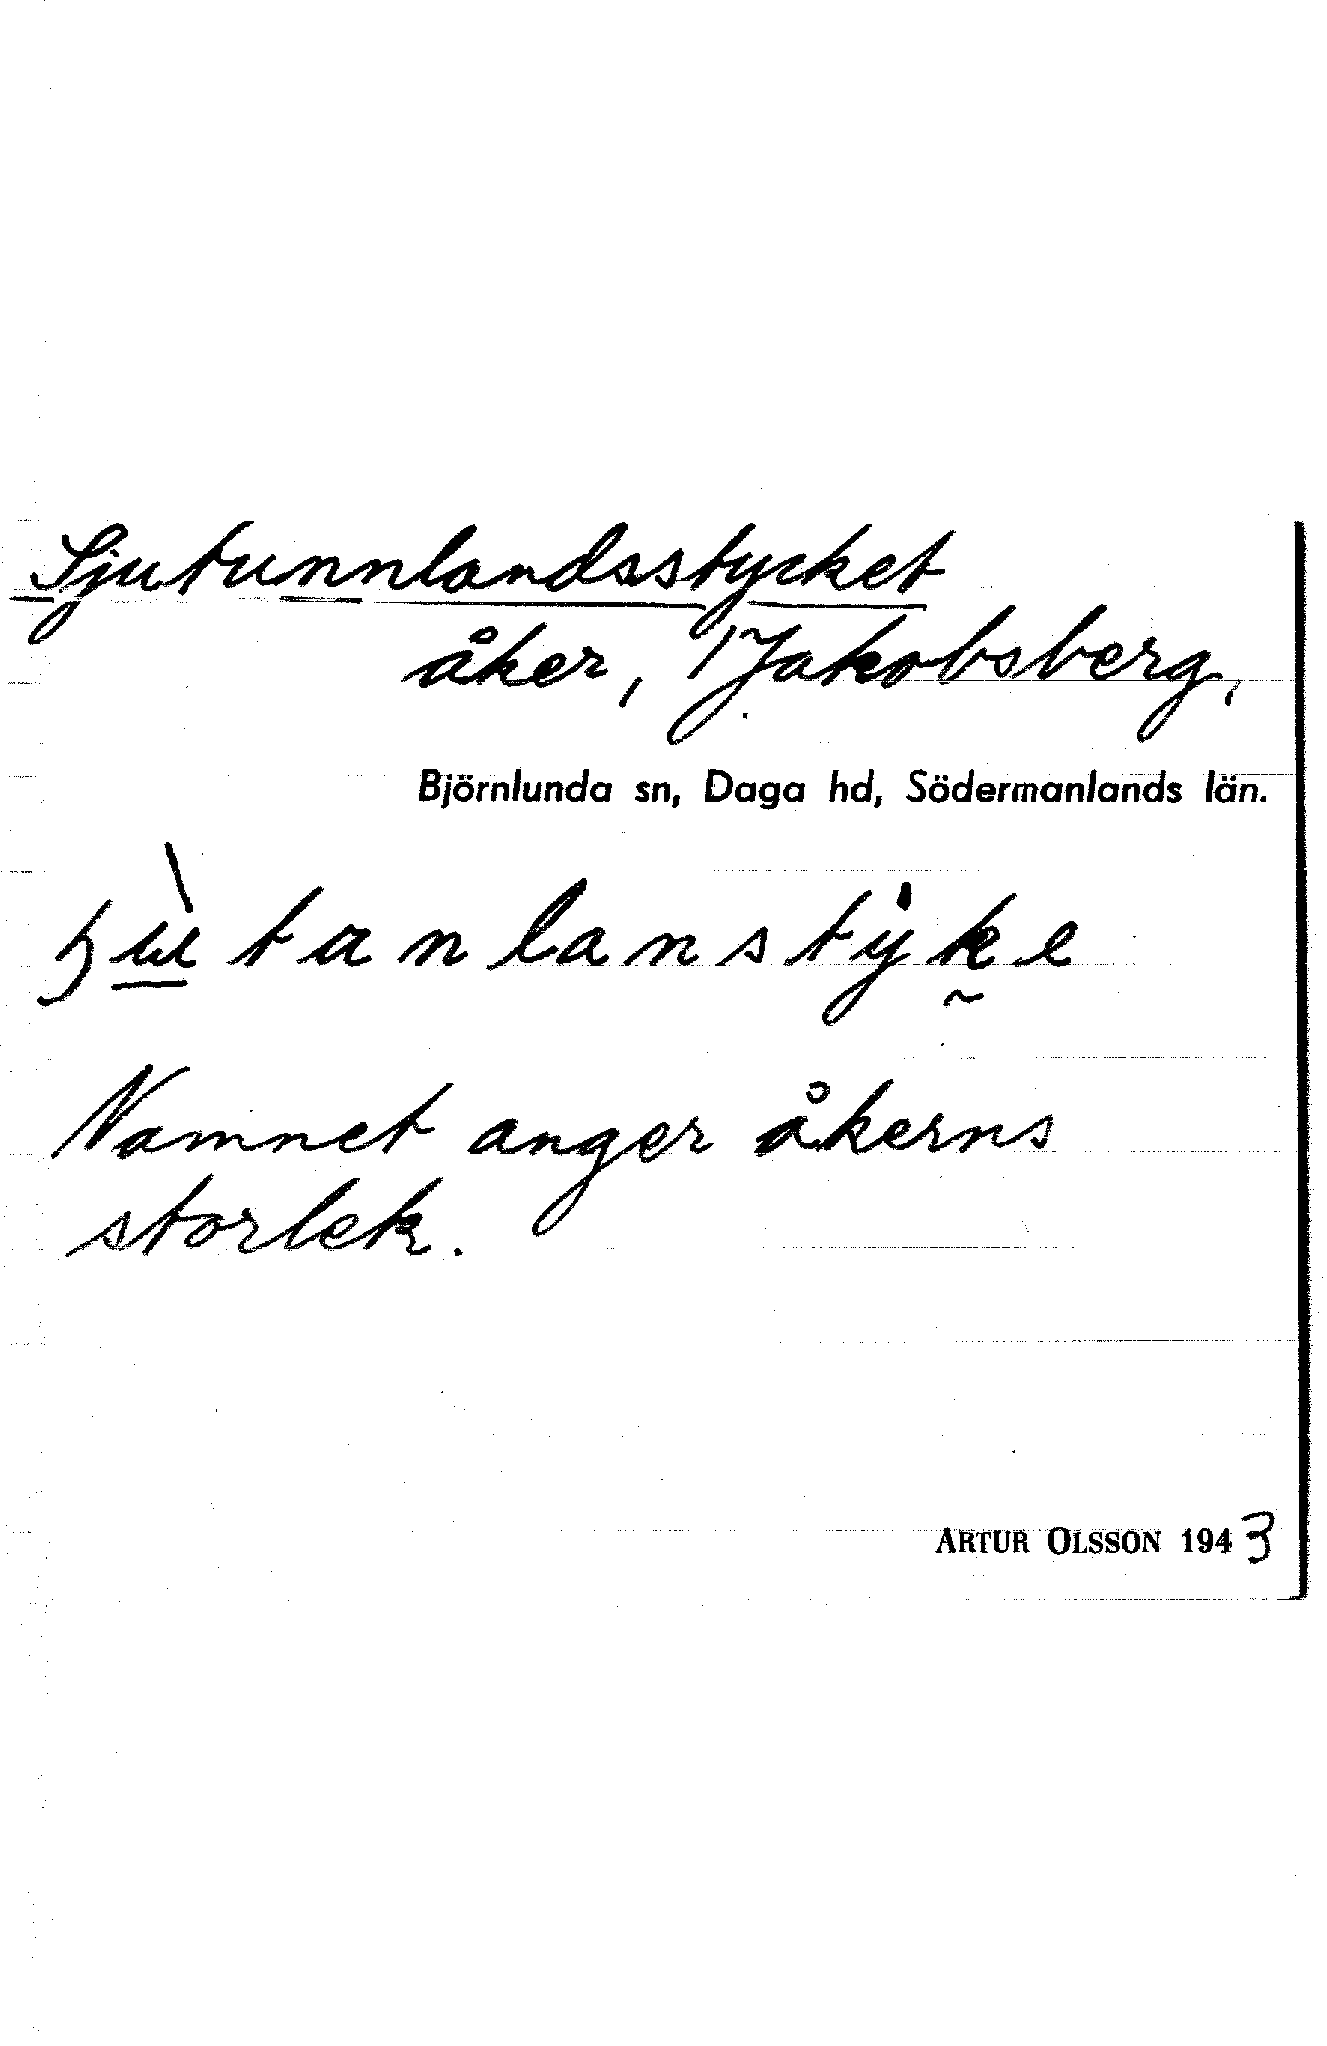 Sjutunnlandsstycket
åker, Jakobsberg,
Björnlunda sn, Daga hd, Södermanlands län.
Namnet anger åkerns
storlek.
ARTUR OLSSON 1943